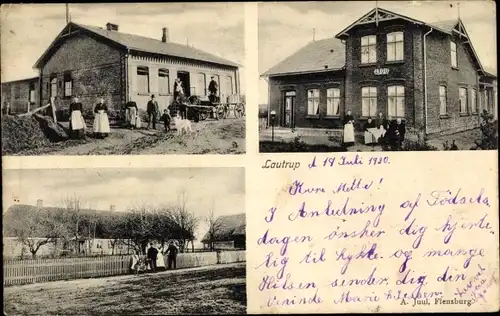 Lautrup d 19 Juli 1920.
Kære Mitte!
I Anledning af Födsels
dagen ønsker dig hjerte
lig til Lykke og mange
Hilsen sender dig din
Veninde Marie
A. Juul, Flensburg.